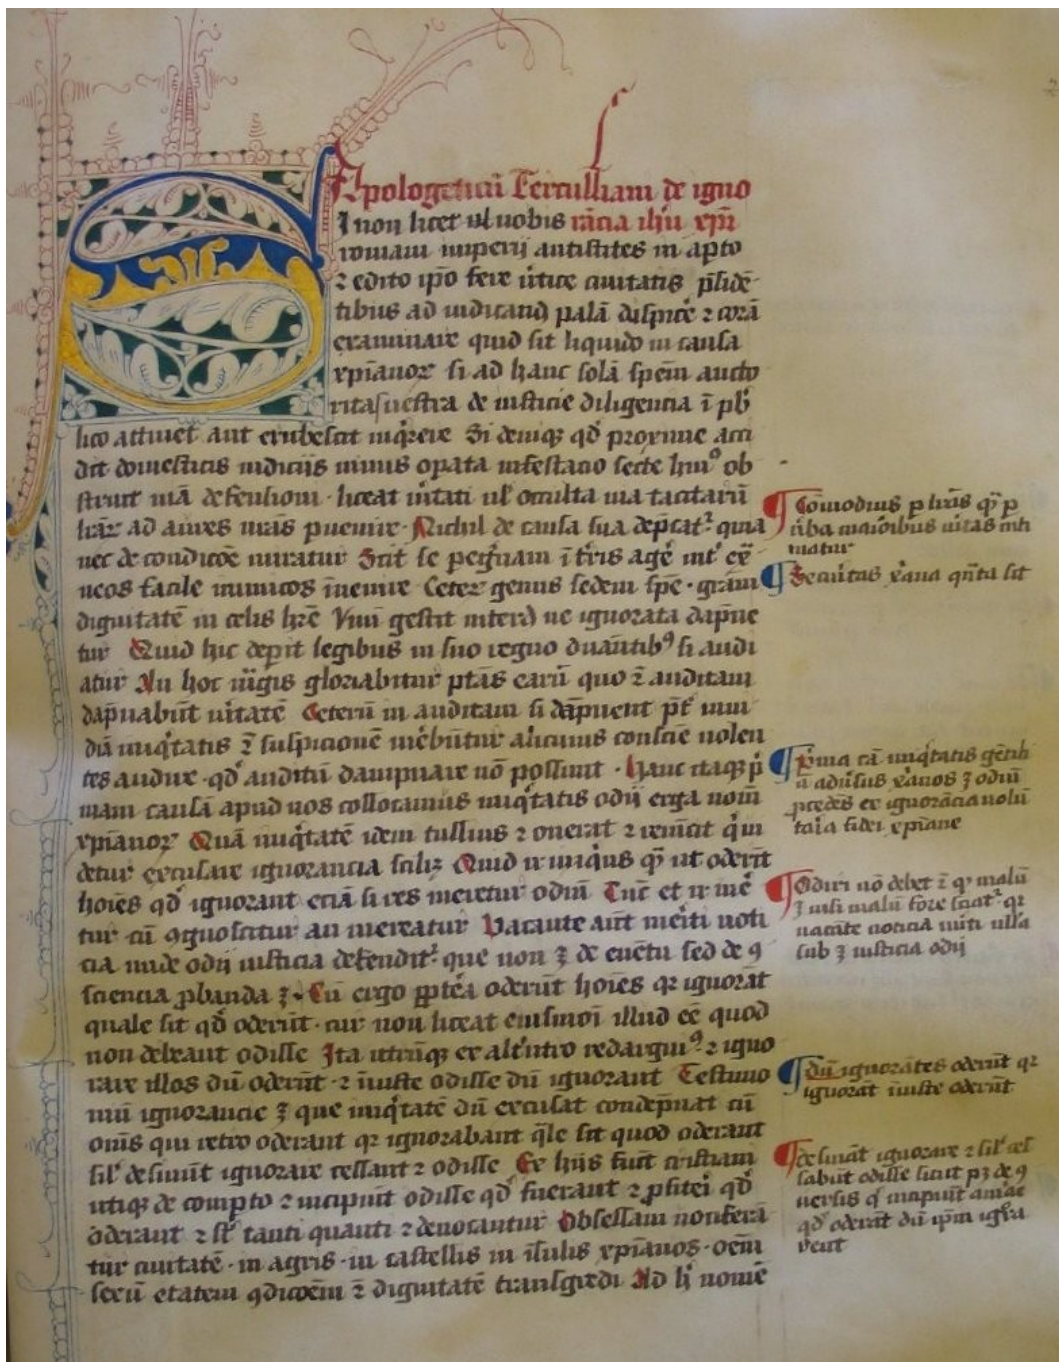 Apologeticū Tertulliani de igno
I non licet vl uobis rācia ihū xp̄i
romani imperij antistites in aṗto
⁊ edito ip̄o fere ūtice ciuitatis p̄sidē
tibus ad iudicand) palā dispiċe ⁊ corā
examinare quid sit liquido in causa
xpīanoꝝ si ad hanc solā spēm aucto
ritas uestra de iusticie diligencia ī pb̄
lico attinet aut erubescit inqͥrere Si deniqꝫ qd̓ proxime acci
dit domesticis iudicijs nimis opata infestacio secte huiꝰ ob
struit uiā defensioni · liceat ūitati ul̓ occulta uia tacitarū
lrāꝝ ad aures uras̄ puenire · Nichil de causa sua dep̄cat᷑ quia
nec de condicōe miratur Scit se peg̓nam ī tr̄is agē int̓ ex̄
neos facile inimicos īnenire Ceteꝝ genus sedem spē · grām
dignitatē in celis hr̄e Vnū gestit interd) ne ignorata dāpne
tur Quid hic depit legibus in suo regno dnāntibꝰ si audi
atur An hoc mḡis gloriabitur ptās̄ earū quo ē auditam
dāpnabūt ūitatē Ceterū in auditam si dāpnent pt̄ inui
diā iniqͥtatis ⁊ suspicionē m̓ebūtur alicuius consciē nolen
tes audire · qd̓ auditū dampnare nō possunt · Hanc itaqꝫ pͥ
mam causā apud uos collocamus iniqͥtatis odij erga nom̄
xpīanoꝝ Quā iniqͥtatē idem tullius ⁊ onerat ⁊ reuīcit qͥ ui
detur excusare ignorancia scilꝫ Quid .n. iniqͥus qͣ ut oderīt
hoīes qd̓ ignorant eciā si res meretur odiū Tūc et .n. me
tur cū ꝯgnoscitur an mereatur Vacante aūt m̓eiti noti
cia unde odij iusticia defendit᷑ que non ꝫ de euētu sed de ꝯ
sciencia ꝓbanda ꝫ · Cū ergo ꝓpt̓ea oderūt hoīes qꝛ ignorāt
quale sit qd̓ oderūt · cur non liceat eiusmoī illud eē quod
non debeant odisse Ita utrūqꝫ ex alt̓nitro redarguiꝰ ⁊ igno
rare illos dū oderūt · ⁊ īiuste odisse dū ignorant Testimo
niū ignorancie ꝫ que iniqͥtatē dū excusat condēpnat cū
om̄s qui retro oderant qꝛ ignorabant qͣle sit quod oderant
sil̓ desinūt ignorare cessant ⁊ odisse Ex hijs fiūt cristiani
utiqꝫ de comp̄to ⁊ incipiūt odisse qd̓ fuerant ⁊ ꝓfiteī qd̓
oderant ⁊ st̄ tanti quanti ⁊ denotantur Obsessam uociferā
tur ciuitatē · in agris · in castellis in īsulis xpīanos · oēm
sexū etatem ꝯdicōem ⁊ dignitatē transgredi Ad h̓ nomē
Cōmodius p lrās qͣ p
ūba maioribus ūitas inti
matur
Secūitas xͥana qn̄ta sit
Pͥma cā iniqͥtatis gētili
ū adūsus xͥanos ꝫ odiū
p̄cedēs ex ignorācia uolū
taīa fidei xpīane
Odiri nō debet ⁊ qͥ malū
ꝫ nisi malū fore sciat᷑ qꝛ
uacāte noticia m̓iti ulla
sub ꝫ iusticia odij
dū ignorātes oderūt qꝛ
ignorāt īiuste oderūt
desināt ignorare ⁊ sil̓ ces
sabūt odisse sicut pꝫ de ꝯ
uersis qͥ incipiūt amāe
qd̓ oderāt dū ip̄m igͦra
rent